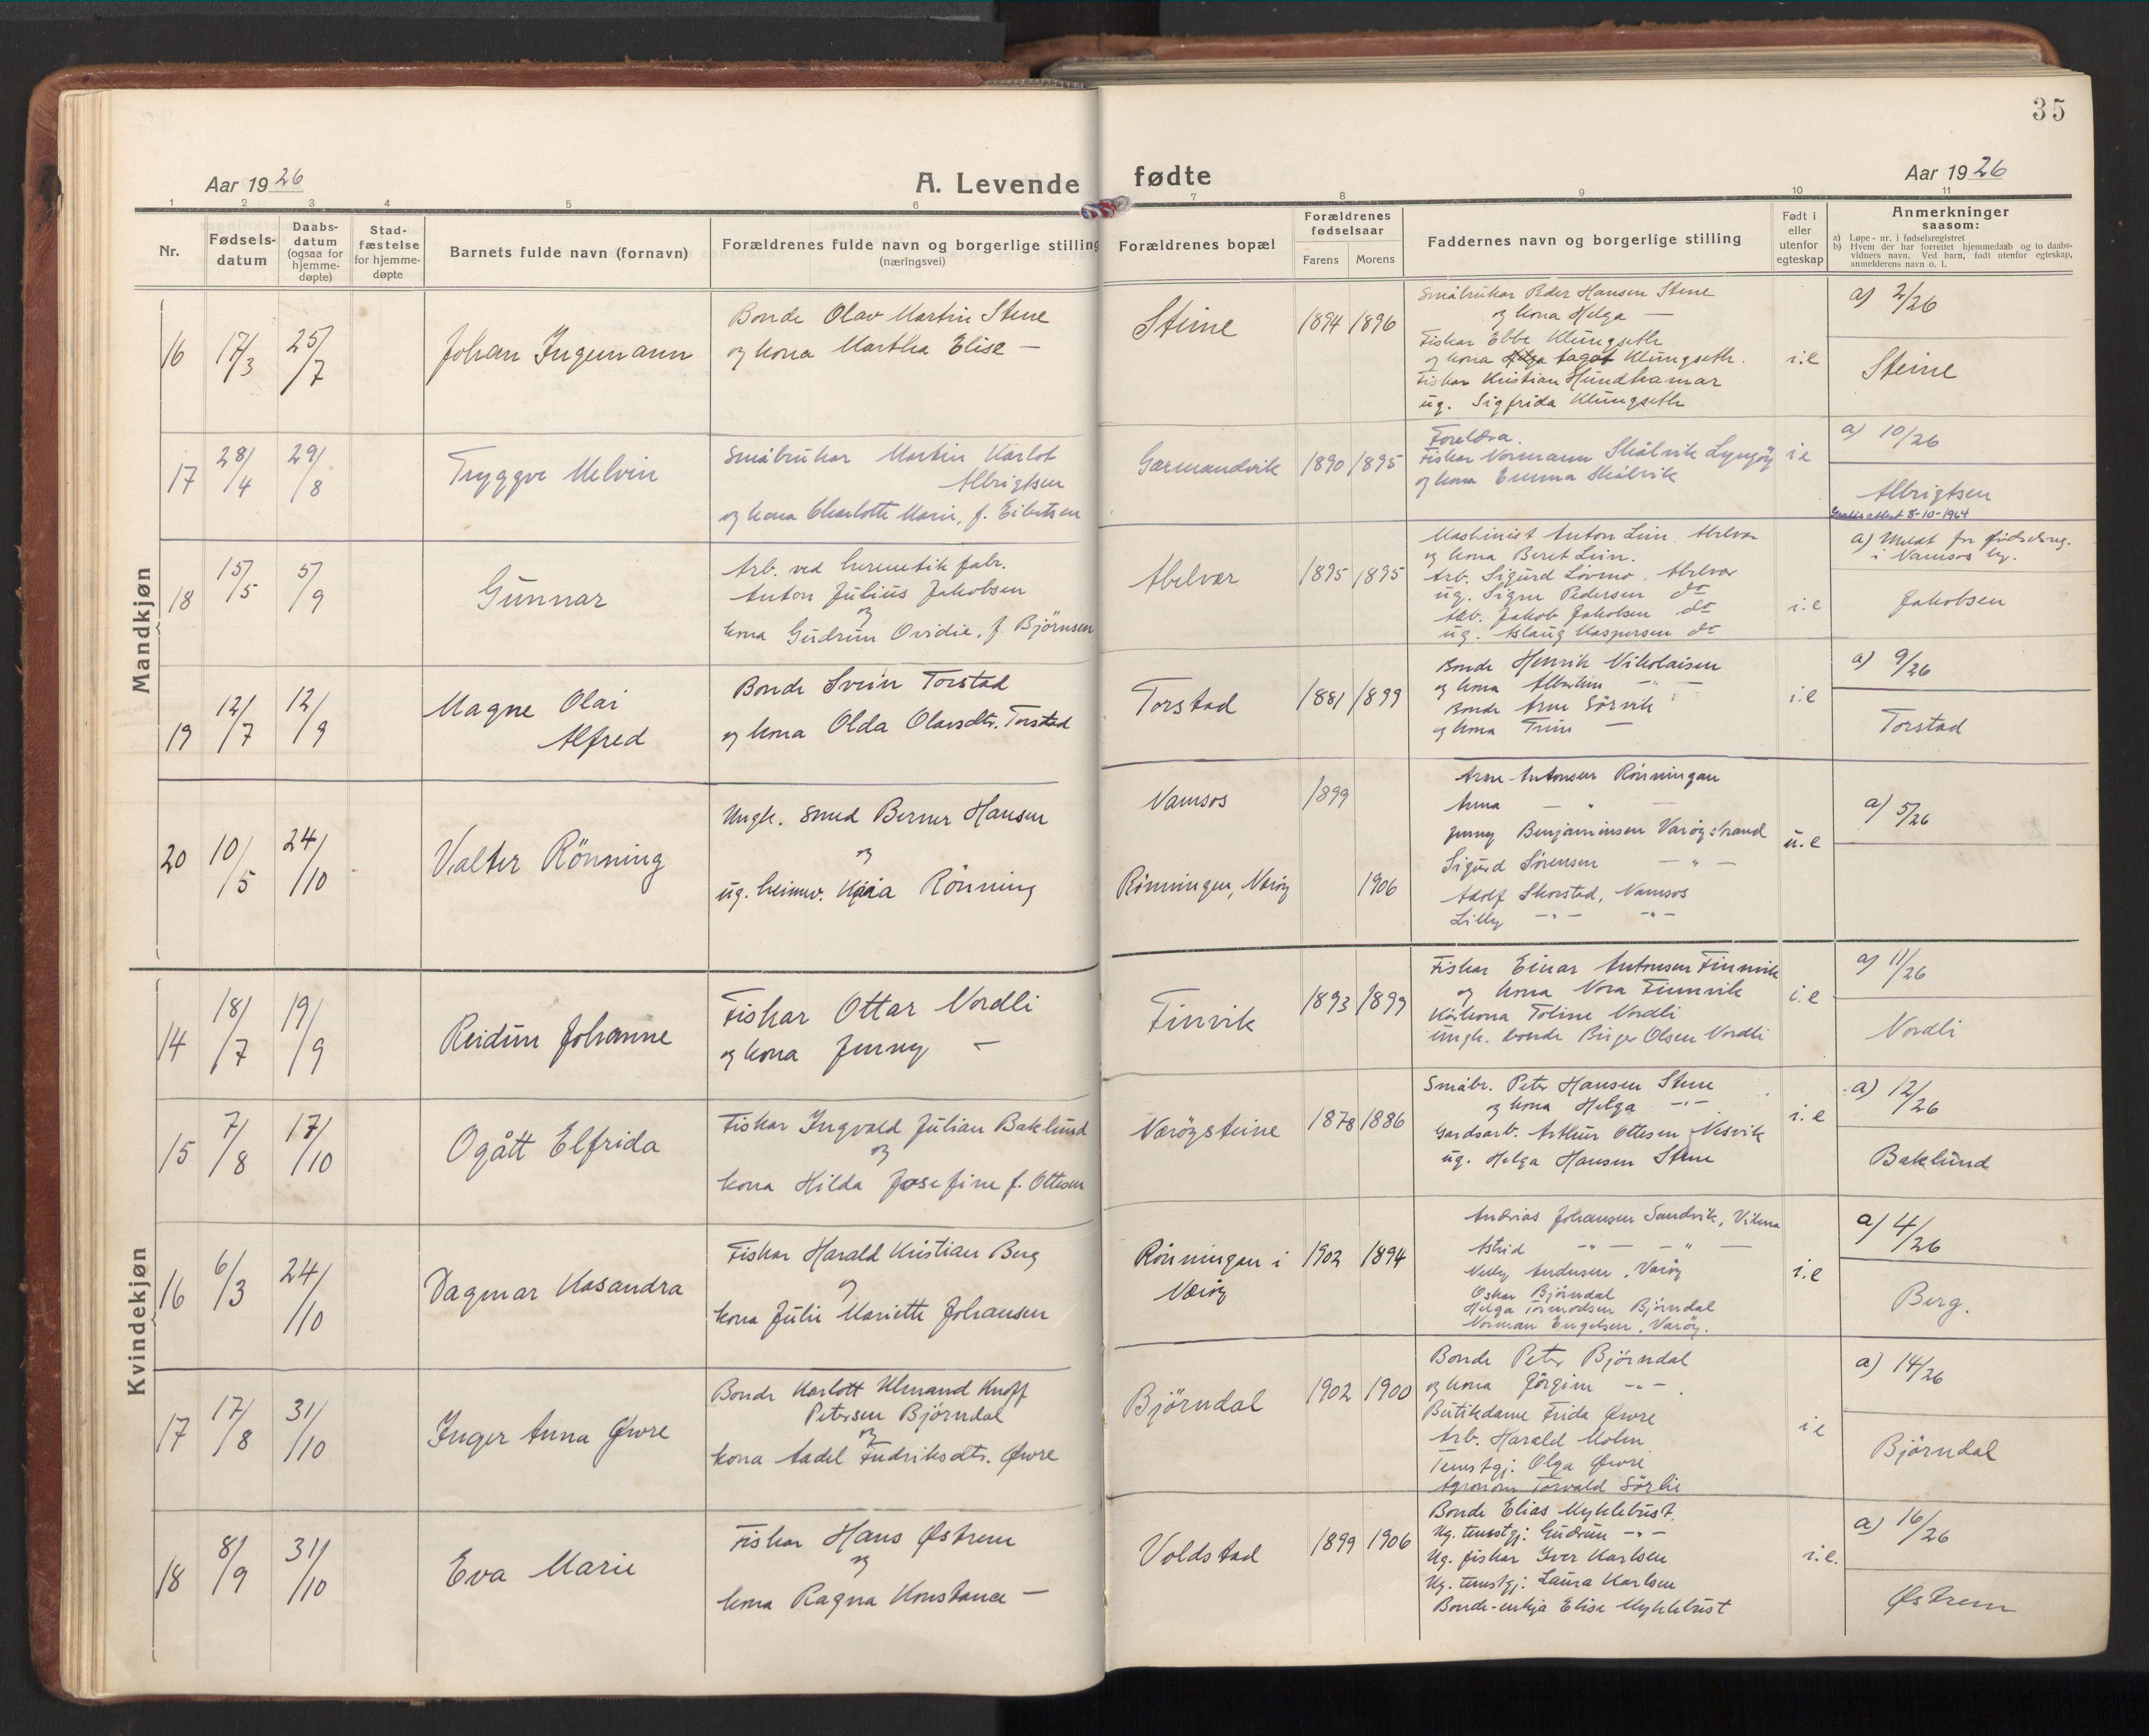 35
Aar 1926
A. Levende fødte
Aar 1926
1 2 3 4 5 6 7 8 9 10 11
Nr.
Fødsels-
datum
Daabs-
datum
(ogsaa for
hjemme-
døpte)
Stad-
fæstelse
for hjemme-
døpte
Barnets fulde navn (fornavn)
Forældrenes fulde navn og borgerlige stilling
(næringsvei)
Forældrenes bopæl
Forældrenes
fødselsaar
Farens Morens
Faddernes navn og borgerlige stilling
Født i
eller
utenfor
egteskap
Anmerkninger
saasom:
a) Løpe-nr. i fødselsregistret
b) Hvem der har forrettet hjemmedaab og to daabs-
vidners navn. Ved barn, født utenfor egteskap,
anmelderens navn o. l.
Mandkjøn
16 17/3 25/7
Johan Ingemann
Bonde Olav Martin Stene
og kona Martha Elise —
Steine
1894 1896
Småbrukar Peder Hansen Stene
og kona Helga —
Fiskar Ebbe Klungseth
og kona Dagot Klungseth.
Fiskar Kristian Hundhamar
ug. Sigfrida Klungseth
i.e
a) 2/26
Steine
17 28/4 29/8
Tryggve Melvin
Småbrukar Martin Karlot
Albrigtsen
og kona Charlotte Marie, f. Eibertsen
Garmandvik
1890 1895
Foreldra.
Fiskar Normann Skålvik Lyngöy
og kona Emma Skålvik
i e
a) 10/26
Albrigtsen
8-10-1964
18 15/5 5/9
Gunnar
Arb. ved hermetik fabr.
Anton Julius Jakobsen
og
kona Gudrun Ovidie, f. Björnsen
Abelvær
1895 1895
Maskinist Anton Lein Abelvær
og kona Beret Lein.
Arb. Sigurd Lövmo, Abelvær
ug. Signe Pedersen do
Arb. Jakob Jakobsen do
ug. Aslaug Kaspersen do
i.e
a) Meldt for fødselsreg.
i Namsos by.
Jakobsen
19 12/7 12/9
Magne Olai
Alfred
Bonde Svein Torstad
og kona Olda Olavsdtr. Torstad
Torstad
1881 1899
Bonde Henrik Nikolaisen
og kona Albertine — " —
Bonde Arne Sörvik
og kona Trine —
i.e
a) 9/26
Torstad
20 10/5 24/10
Valter Rönning
Ungk. smed Berner Hansen
og
ug. heimev. Kaia Rönning
Namsos
Rönningen, Næröy
1899
1906
Arne Antonsen Rönningen
Anna — " —
Jenny Benjaminsen Varöystrand
Sigurd Sörensen — " —
Adolf Skorstad, Namsos
Lilly — " — — " —
u.e
a) 5/26
Kvindekjøn
14 18/7 19/9
Reidun Johanne
Fiskar Ottar Nordli
og kona Jenny —
Finvik
1893 1899
Fiskar Einar Antonsen Finnvik
og kona Nora Finnvik
Kårkona Toline Nordli
Ungk. bonde Birger Olsen Nordli
i.e
a) 11/26
Nordli
15 7/8 17/10
Ogått Elfrida
Fiskar Ingvald Julian Baklund
og
kona Hilda Josefine f. Ottesen
Næröysteine
1878 1886
Småbr. Peter Hansen Stene
og kona Helga — " —
Gardsarb. Arthur Ottesen Nesvik
ug. Helga Hansen Stene
i. e
a) 12/26
Baklund
16 6/3 24/10
Dagmar Kasandra
Fiskar Harald Kristian Berg
og
kona Julie Mariette Johansen
Rönningen i
Næröy
1902 1894
Andreas Johansen Sandvik, Vikna
Astrid — " — — " —
Nelly Andersen, Varöy
Oskar Björndal
Helga Tormodsen Björndal
Norman Engelsen, Varöy.
i.e
a) 4/26
Berg.
17 17/8 31/10
Inger Anna Øvre
Bonde Karlott Elmand Knoff
Petersen Björndal
og
kona Aadel Fredriksdtr. Øvre
Björndal
1902 1900
Bonde Peter Björndal
og kona Jörgine — " —
Butikdame Frida Øvre
Arb. Harald Holm
Tenestgj: Olga Øvre
Agronom Torvald Sörlie
i e
a) 14/26
Björndal
18 8/9 31/10
Eva Marie
Fiskar Hans Østrem
og
kona Ragna Konstance —
Voldstad
1899 1906
Bonde Elias Myklebust.
Ug. tenestgj: Gudrun — " —
Ug. fiskar Iver Karlsen
Ug. tenestgj: Laura Karlsen
Bonde-enkja Elise Myklebust
i.e.
a) 16/26
Østrem